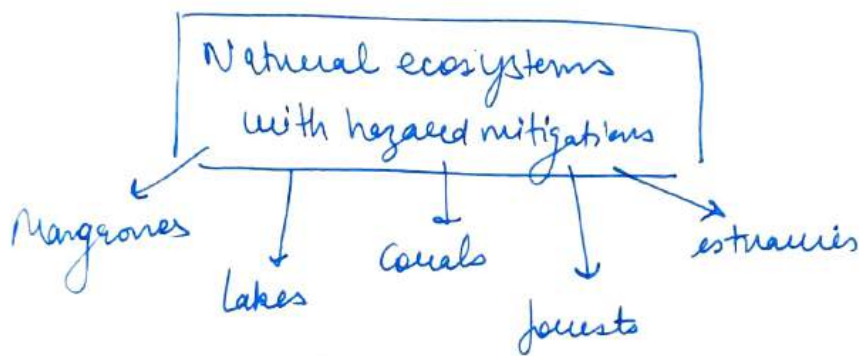 Natural ecosystems
with hazard mitigations
Mangroves
Lakes
Corals
forests
estuaries